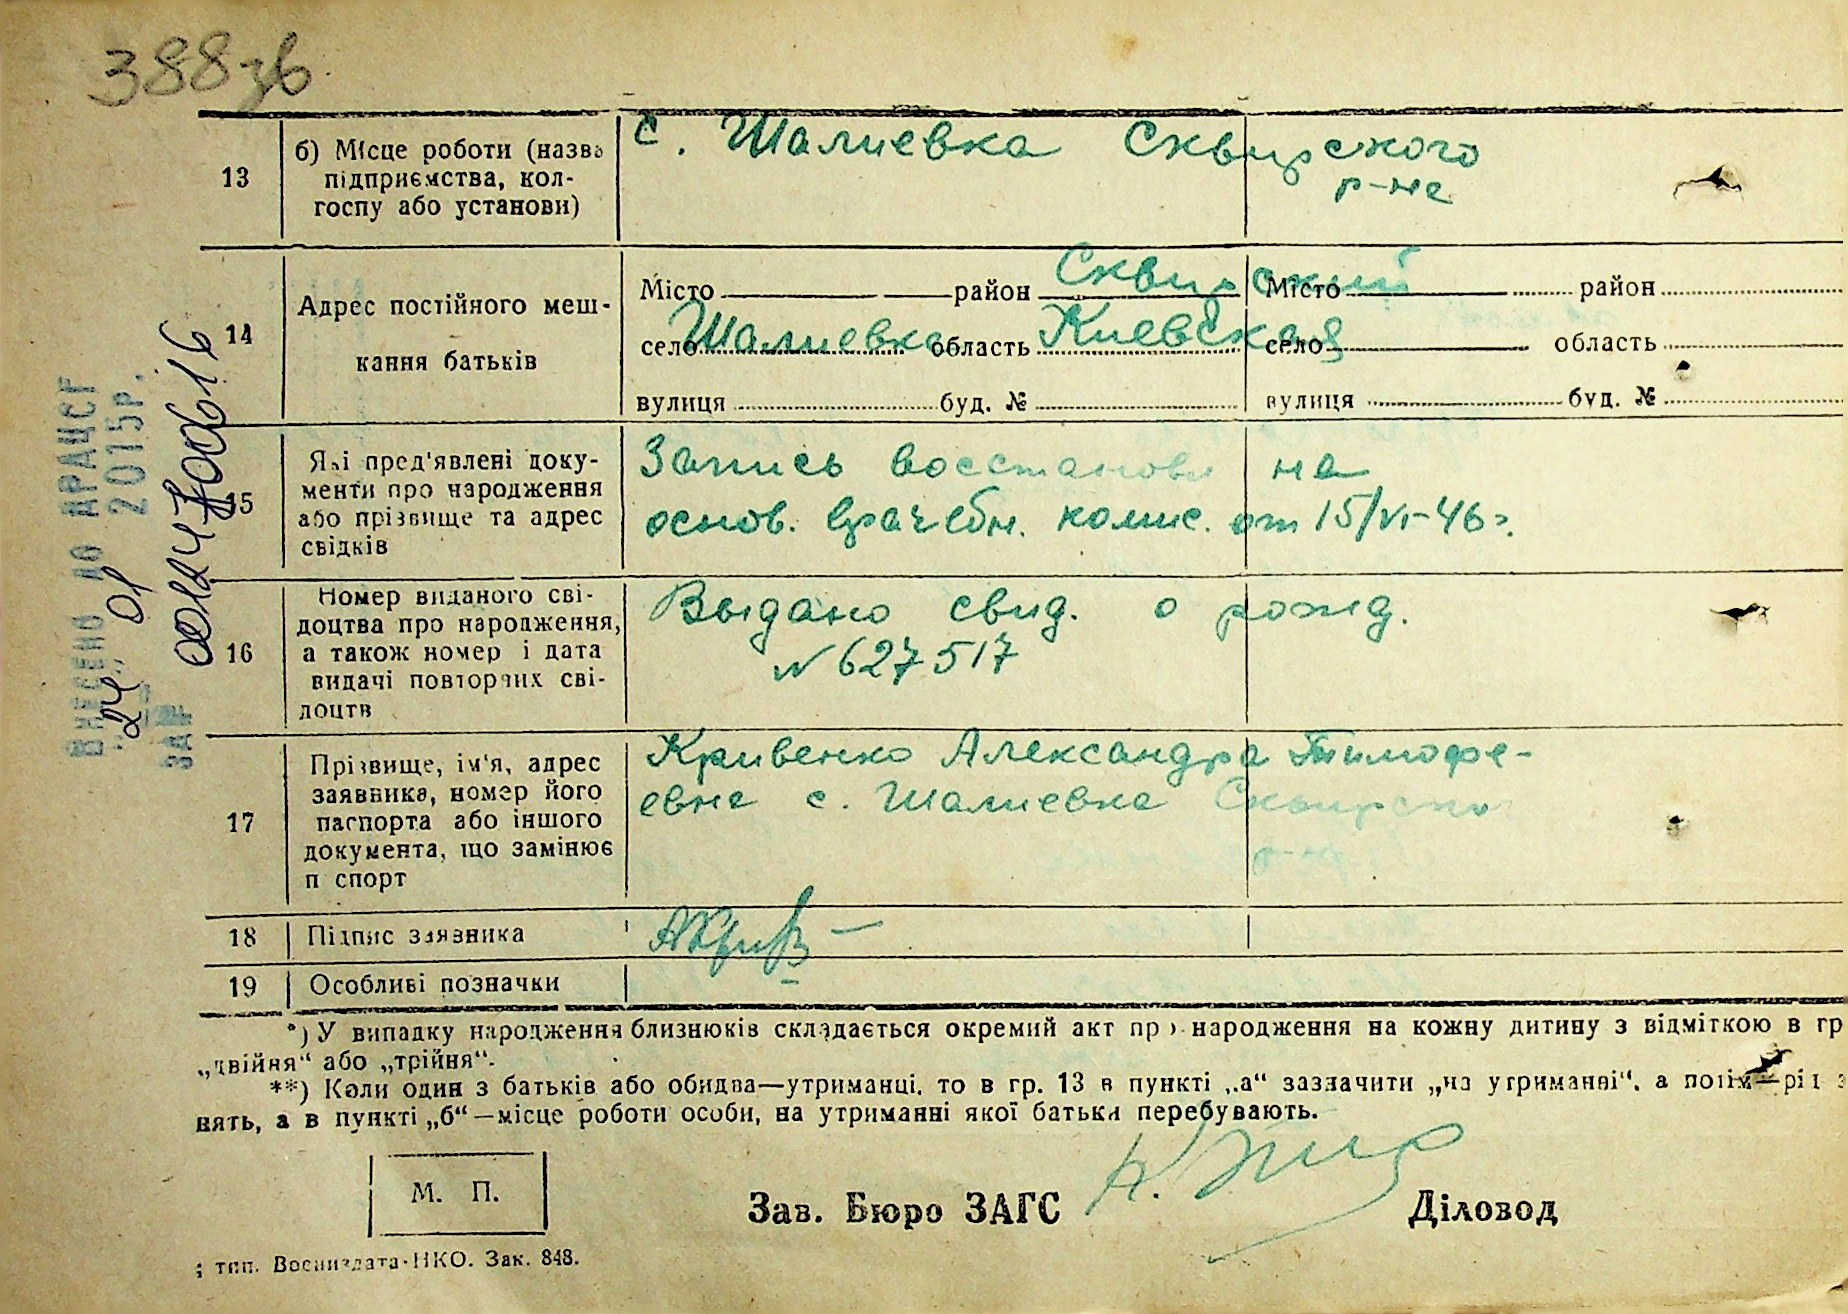 388зв
13 б) Місце роботи (назва підприємства, колгоспу або установи)
с. Шалиевка Сквирского
р-на
14 Адрес постійного мешкання батьків
Місто район Сквирский Місто район
село Шалиевка область Киевская село область
вулиця буд. № вулиця буд. №
15 Які пред'явлені документи про народження або прізвище та адрес свідків
Запись восстановл на
основ. врачебн. комис. от 15/VI-46г.
16 Номер виданого свідоцтва про народження, а також номер і дата видачі повторних свідоцтв
Выдано свид. о рожд.
№ 627517
17 Прізвище, ім'я, адрес заявника, номер його паспорта або іншого документа, що замінює п спорт
Кривенко Александра Тимофе-
евна с. Шалиевка Сквирско
р-н
18 Підпис заявника
АКрив
19 Особливі позначки
*) У випадку народження близнюків складається окремий акт про народження на кожну дитину з відміткою в гр
„двійня“ або „трійня“.
**) Коли один з батьків або обидва—утриманці, то в гр. 13 в пункті „а“ зазначити „на утриманні“, а потім—рід з
нять, а в пункті „б“—місце роботи особи, на утриманні якої батьки перебувають.
М. П.
Зав. Бюро ЗАГС
Діловод
тип. Воениздата НКО. Зак. 848.
ВНЕСЕНО ДО ДРАЦСГ
„24„ 01 2015р.
ЗА№ 00124700616